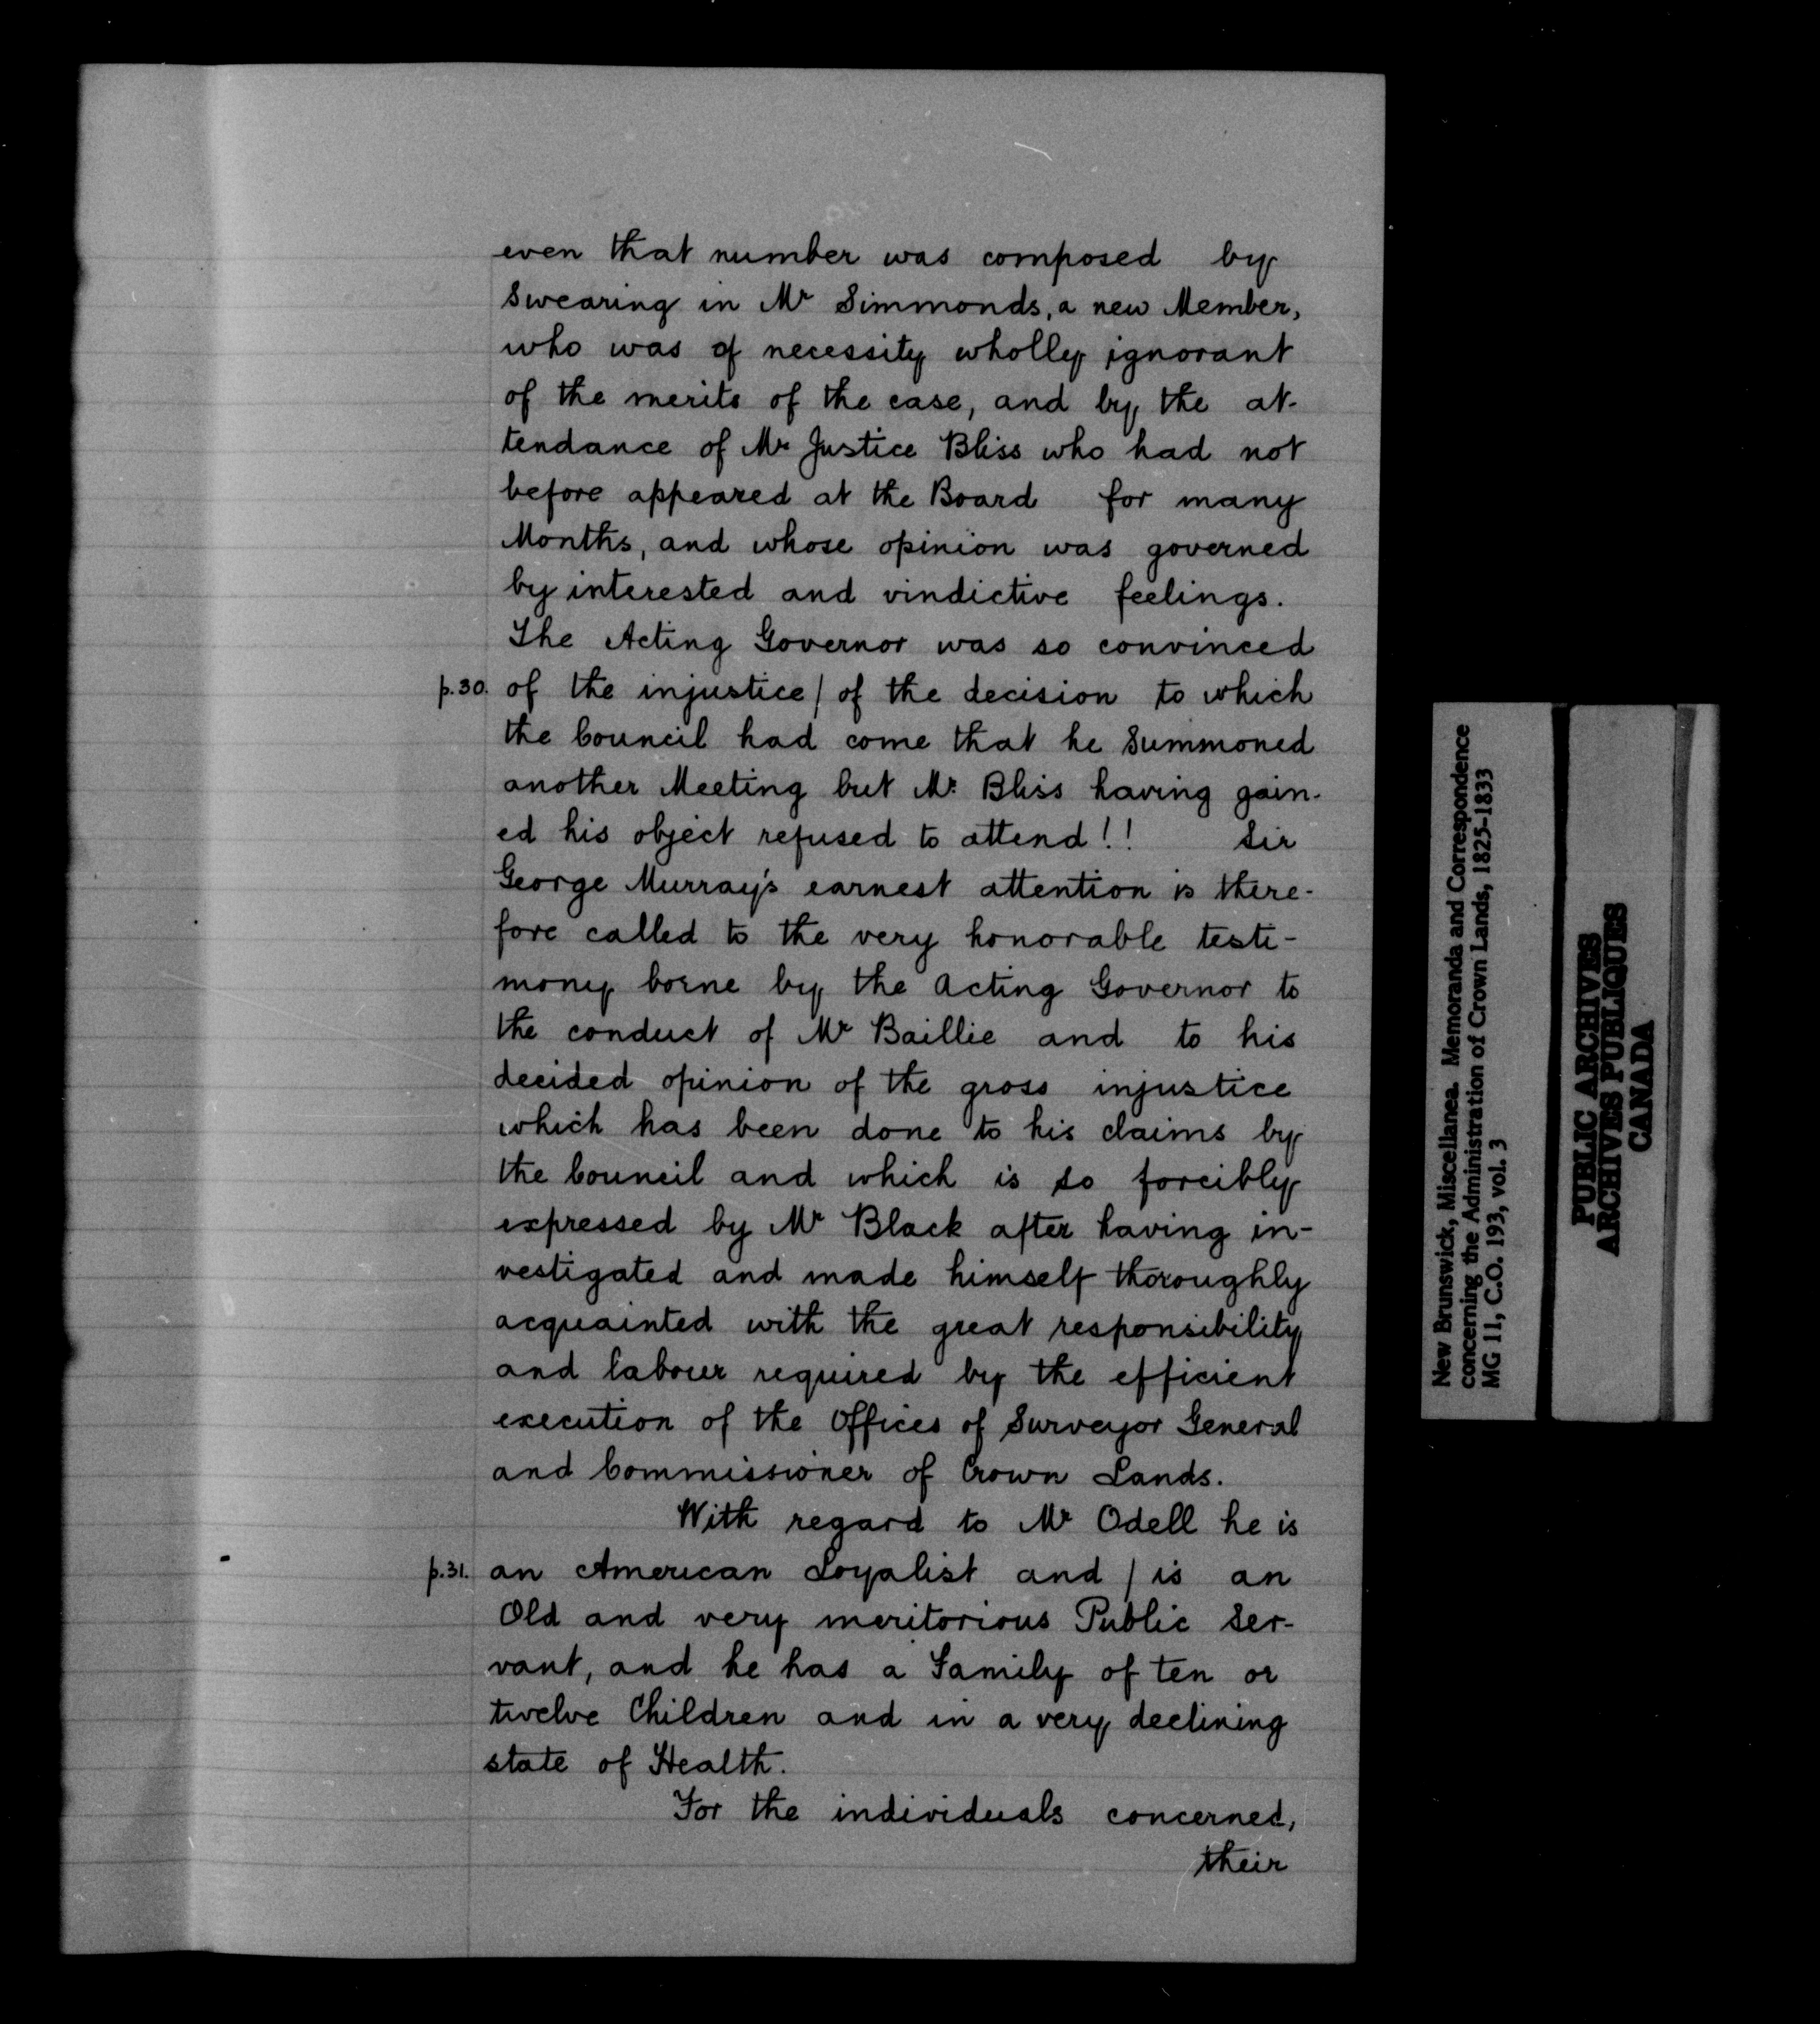 even that number was composed by
Swearing in Mr Simmonds, a new Member,
who was of necessity wholly ignorant
of the merits of the case, and by the at-
tendance of Mr Justice Bliss who had not
before appeared at the Board for many
Months, and whose opinion was governed
by interested and vindictive feelings.
The Acting Governor was so convinced
p.30. of the injustice / of the decision to which
the Council had come that he Summoned
another Meeting but Mr. Bliss having gain-
ed his object refused to attend!! Sir
George Murray's earnest attention is there-
fore called to the very honorable testi-
mony borne by the Acting Governor to
the conduct of Mr Baillie and to his
decided opinion of the gross injustice
which has been done to his claims by
the Council and which is so forcibly
expressed by Mr Black after having in-
vestigated and made himself thoroughly
acquainted with the great responsibility
and labour required by the efficient
execution of the Offices of Surveyor General
and Commissioner of Crown Lands.
With regard to Mr Odell he is
p.31. an American Loyalist and / is an
Old and very meritorious Public Ser-
vant, and he has a Family of ten or
twelve Children and in a very declining
state of Health.
For the individuals concerned,
their
New Brunswick, Miscellanea. Memoranda and Correspondence
concerning the Administration of Crown Lands, 1825-1833
MG 11, C.O. 193, vol. 3
PUBLIC ARCHIVES
ARCHIVES PUBLIQUES
CANADA